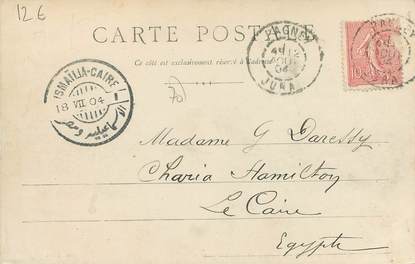 12 €
CARTE POSTALE
Ce côté est exclusivement réservé à l'adresse
PAGNEY
04
JURA
ISMAÏLIA-CAIRE
18 VII 04
70
Madame G Daressy
Charia Hamilton
Le Caire
Egypte